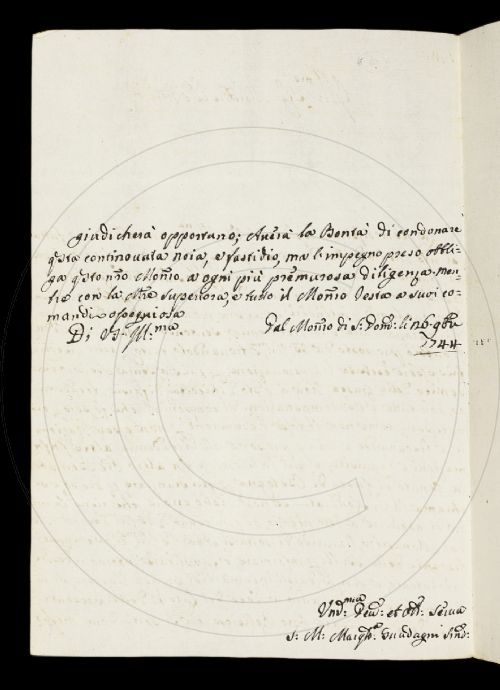 giudicherà opportuno; Averà la Bontà di condonare
q̃sta continovata noia, e fastidio, ma l'impegno preso obbli-
ga q̃sto nr̃o Mon̄rio a ogni più premurosa diligenza men-
tre con la M̃re Superiora, e tutto il Mon̄rio resta a suoi co-
mandi ossequiosa
Di VS: Ill:ma Dal Mon̄rio di S: Dom̄: li 26: 9bre
1744
Um̄:ma Dev̄: et Ob̄: Serva
S: M: Guadagni Sind: